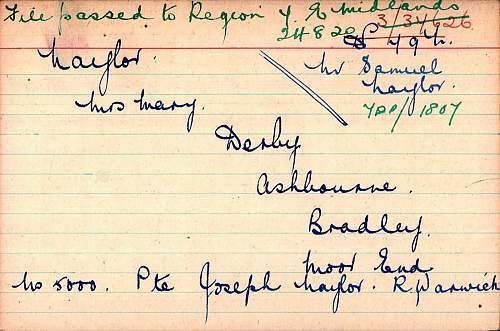 File passed to Region 4. E Midlands
24820 3/34626
S 49th.
Naylor. Mr Samuel
Naylor.
Mrs Mary. 7DD/1807
Derby
Ashbourne.
Bradley.
Moor End
No 5000. Pte Joseph Naylor. R. Warwick